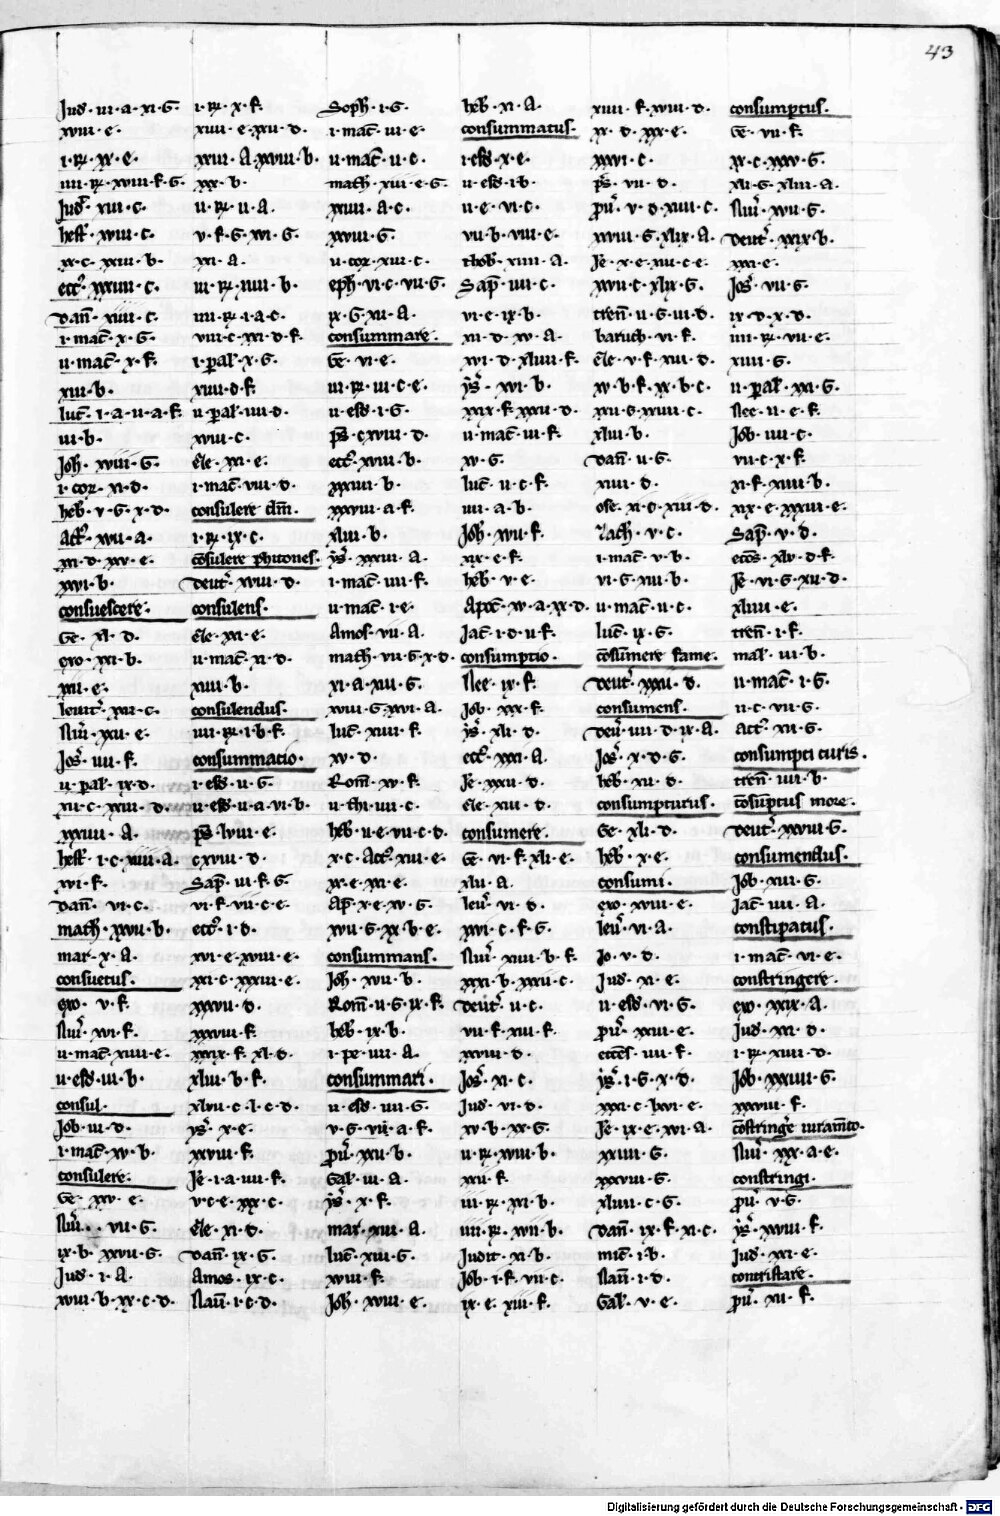 43
Jud · iii · a · xi · G ·
xviii · e ·
i · R̃ · xx · e ·
iiii · R̃ · xviii · f · G ·
Judʳ · xiii · c ·
hest̃ · xviii · c ·
xx · c · xxiii · b ·
eccͥ · xxxiiii · c ·
dañ · xiiii · c ·
i · mac̃ · x · G ·
ii · mac̃ · x · f ·
xiii · b ·
luc̃ · i · a · ii · a · f ·
iii · b ·
Joh · xviii · G ·
i · cor · xi · d ·
heb̃ · v · G · x · d ·
Act̃ · xvii · a ·
xxi · d · xxv · e ·
xxvi · b ·
consuescere ·
Ge · xl · d ·
exo · xxi · b ·
xxii · e ·
leuit̃ · xxi · c ·
Nũ · xxii · e ·
Jos̃ · iiii · f ·
ii · pal · ix · d ·
xii · c · xxiii · d ·
xxxiiii · A ·
hest̃ · i · c · xiiii · A ·
xvi · f ·
dañ · vi · c ·
math · xxvii · b ·
mar · x · A ·
consuetus ·
exo · v · f ·
Nũ · xvi · f ·
ii · mac̃ · xiiii · e ·
ii · esd · iii · b ·
consul ·
Job · iii · d ·
i · mac̃ · xv · b ·
consulere ·
Ge · xxv · e ·
Nũ · vii · G ·
ix · b · xxvii · G ·
Jud · i · A ·
xviii · b · xx · c · d ·
i · R̃ · x · f ·
xiiii · e · xxii · d ·
xxiii · A · xxviii · b ·
xxx · b ·
ii · R̃ · ii · A ·
v · f · G · xvi · G ·
xxi · A ·
iii · R̃ · xiiii · b ·
iiii · R̃ · i · a · c ·
viii · c · xxi · d · f ·
i · pal · x · G ·
xiiii · d · f ·
ii · pal · iiii · d ·
xviii · c ·
Eze · xxi · e ·
i · mac̃ · viii · d ·
consulere dm̃ ·
i · R̃ · ix · c ·
cõsulere phitones ·
deut̃ · xviii · d ·
consulens ·
Eze · xxi · e ·
ii · mac̃ · xi · d ·
xiiii · b ·
consulendus ·
iiii · R̃ · i · b · f ·
consummatio ·
i · esd · ii · G ·
ii · esd · ii · a · vi · b ·
ps̃ · lviii · e ·
cxviii · d ·
Sap̃ · iii · f · G ·
vi · f · vii · c · e ·
eccͥ · i · d ·
xvi · e · xviii · e ·
xxi · c · xxxiii · e ·
xxxvii · d ·
xxxviii · f ·
xxxix · f · xl · d ·
xliii · b · f ·
xlvii · c · l · c · d ·
ys̃ · x · e ·
xxviii · f ·
Je · i · a · iiii · f ·
v · c · e · xxx · c ·
Eze · xi · d ·
dañ · ix · G ·
Amos · ix · c ·
Naũ · i · c · d ·
Soph̃ · i · G ·
i · mac̃ · iii · e ·
ii · mac̃ · ii · c ·
math · xiii · e · G ·
xxiiii · a · c ·
xxviii · G ·
ii · cor · xiii · c ·
eph · vi · c · vii · G ·
ix · G · xii · A ·
consummare ·
Ge · vi · e ·
iii · R̃ · iii · c · e ·
ii · esd · i · G ·
ps̃ · cxviii · d ·
eccͥ · xviii · b ·
xxxiiii · b ·
xxxviii · a · f ·
xliii · b ·
ys̃ · xxxiii · A ·
i · mac̃ · iiii · f ·
ii · mac̃ · i · e ·
Amos · vii · A ·
math · vii · G · x · d ·
xi · a · xiii · G ·
xviii · G · xxvi · A ·
luc̃ · xiiii · f ·
xv · d ·
Rom̃ · xv · f ·
ii · thi · iiii · c ·
heb̃ · ii · e · vii · c · d ·
x · c · Act̃ · xiii · e ·
xx · e · xxi · e ·
Ap̃ · x · e · xv · G ·
xvii · G · xx · b · e ·
consummans ·
Joh · xvii · b ·
Rom̃ · ii · G · ix · f ·
heb̃ · ix · b ·
i · pe · iiii · A ·
consummari ·
ii · esd · iiii · G ·
v · G · vii · a · f ·
pũ · xxii · b ·
Gal · iii · A ·
ys̃ · x · f ·
mar · xiii · A ·
luc̃ · xiii · G ·
xviii · f ·
Joh · xviii · e ·
heb̃ · xi · A ·
consummatus ·
i · esd · x · e ·
ii · esd · i · b ·
ii · e · vi · c ·
vii · b · viii · e ·
thob · xiiii · A ·
Sap̃ · iiii · c ·
vi · c · ix · b ·
xi · d · xv · A ·
xvi · d · xliiii · f ·
ys̃ · xvi · b ·
xxix · f · xxxii · d ·
ii · mac̃ · iii · f ·
xv · G ·
luc̃ · ii · c · f ·
iiii · a · b ·
Joh · xvii · f ·
xix · e · f ·
heb̃ · v · e ·
Apoc̃ · xv · a · xx · d ·
Jac̃ · i · d · ii · f ·
consumptio ·
Nee · ix · f ·
Job · xxx · f ·
ys̃ · xli · d ·
eccͥ · xxxi · A ·
Je · xxxii · d ·
Eze · xiii · d ·
consumere ·
Ge · vi · f · xli · e ·
xlii · A ·
leũ · vi · d ·
xxvi · c · f · G ·
Nũ · xiiii · b · f ·
xxxi · b · xxxii · c ·
deut̃ · ii · c ·
vii · f · xiii · f ·
xxviii · d ·
Jos̃ · xi · c ·
Jud · vi · d ·
xv · b · xx · G ·
ii · R̃ · xviii · b ·
xxii · f ·
iii · R̃ · xxi · b ·
iiii · R̃ · xvii · b ·
Judit · xi · b ·
Job · i · f · vii · c ·
ix · e · xiii · f ·
xiiii · f · xviii · d ·
xx · d · xxx · e ·
xxxvi · c ·
ps̃ · vii · d ·
pũ · v · d · xiiii · c ·
xxviii · G · xlix · A ·
Je · x · e · xii · c · e ·
xxvii · c · xlix · G ·
treñ · ii · G · iii · d ·
baruch · vi · f ·
Eze · v · f · xiii · d ·
xv · b · f · xx · b · c ·
xxii · G · xxiiii · c ·
xliii · b ·
dañ · ii · G ·
xiiii · d ·
ose · xi · c · xiii · d ·
Zach · v · c ·
i · mac̃ · v · b ·
vi · G · xii · b ·
ii · mac̃ · ii · c ·
luc̃ · ix · G ·
cõsũmere fame ·
deut̃ · xxxii · d ·
consumens ·
deũ · iiii · d · ix · A ·
Jos̃ · x · d · G ·
heb · xii · d ·
consumpturus ·
Ge · xli · d ·
heb̃ · x · e ·
consumi ·
exo · xviii · e ·
leũ · vi · A ·
Jo · v · d ·
Jud · xi · e ·
ii · esd · vi · G ·
pũ · xxii · e ·
eccẽs · iiii · f ·
ys̃ · i · G · x · d ·
xxxi · c · lxvi · e ·
Je · ix · e · xvi · A ·
xxiiii · G ·
xxxviii · G ·
xliiii · c · G ·
Dañ · ix · f · xi · c ·
mic̃ · i · b ·
Naũ · i · d ·
Gal · v · e ·
consumptus ·
Ge · vii · f ·
xx · c · xxxv · G ·
xli · G · xliii · A ·
Nũ · xvii · G ·
deut̃ · xxix · b ·
xxxi · e ·
Jos̃ · vii · G ·
ix · d · x · d ·
iiii · R̃ · vii · e ·
xiiii · G ·
ii · pal · xxi · G ·
Nee · ii · e · f ·
Job · iiii · c ·
vii · c · x · f ·
xi · f · xiiii · b ·
xix · e · xxxiii · e ·
Sap̃ · v · d ·
ecc̃s · xlv · d · f ·
Je · vi · G · xii · d ·
xliiii · e ·
treñ · i · f ·
mal · iii · b ·
ii · mac̃ · i · G ·
ii · c · vii · G ·
act̃ · xi · G ·
consumpti curis ·
treñ · iiii · b ·
cõsũptus more ·
deut̃ · xxviii · G ·
consumendus ·
Job · xiii · G ·
Jac̃ · iiii · A ·
constipatus ·
i · mac̃ · vi · e ·
constringere ·
exo · xxix · A ·
Jud · xvi · d ·
i · R̃ · xiiii · d ·
Job · xxxiiii · G ·
xxxviii · f ·
cõstringe iuram̃to ·
Nũ · xxx · a · e ·
constringi ·
pũ · v · G ·
ys̃ · xxviii · f ·
Jud · xxi · e ·
contristare ·
pũ · xii · f ·
Digitalisierung gefördert durch die Deutsche Forschungsgemeinschaft - DFG